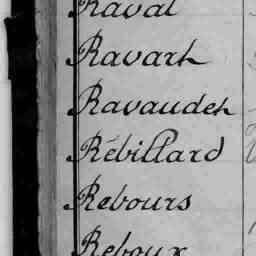 Raval
Ravart
Ravaudet
Rébillard
Rebours
Reboux